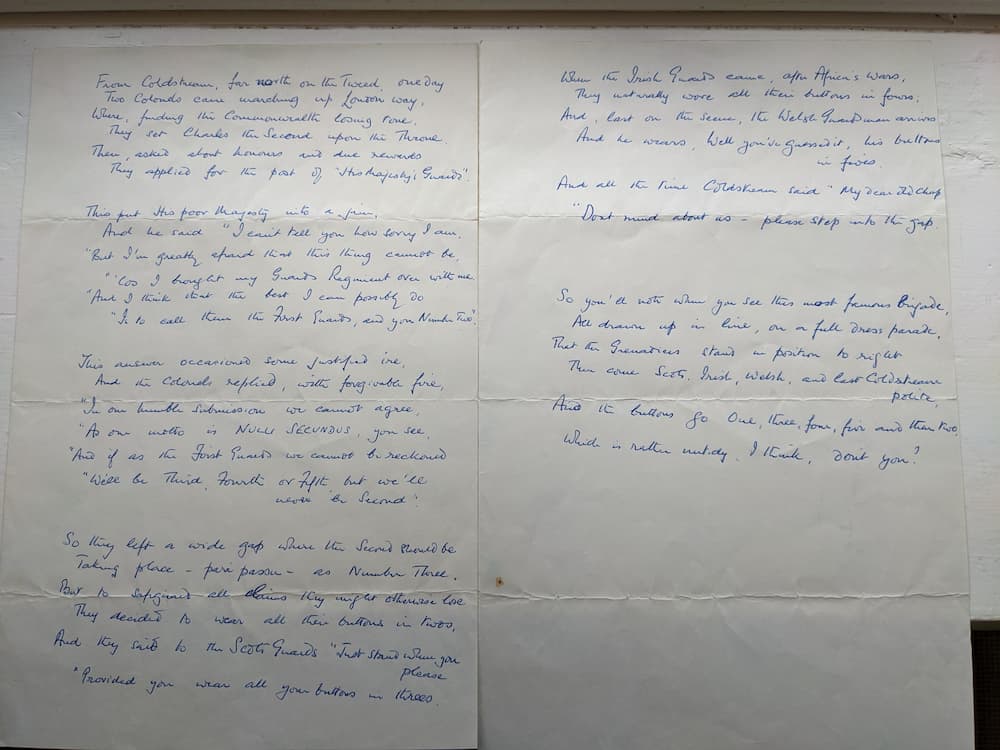 From Coldstream, far north on the Tweed, one day
Two Colonels came marching up London way,
Where, finding the Commonwealth losing tone,
They set Charles the Second upon the Throne.
Then, asked about honours and due rewards
They applied for the post of "His Majesty's Guards".
This put His poor Majesty into a jam,
And he said "I can't tell you how sorry I am,
"But I'm greatly afraid that this thing cannot be,
"'Cos I brought my Guards Regiment over with me
"And I think that the best I can possibly do
"Is to call them the First Guards, and you Number Two".
This answer occasioned some justified ire,
And the Colonels replied, with forgivable fire,
"In our humble submission we cannot agree,
"As our motto is NULLI SECUNDUS, you see,
"And if as the First Guards we cannot be reckoned
"We'll be Third, Fourth or Fifth but we'll
never be Second".
So they left a wide gap where the Second should be
Taking place - pari passu - as Number Three.
But to safeguard all claims they might otherwise lose
They decided to wear all their buttons in twos,
And they said to the Scots Guards "Just stand when you
please
"Provided you wear all your buttons in threes.
When the Irish Guards came, after Africa's wars,
They naturally wore all their buttons in fours;
And, last on the scene, the Welsh Guardsman arrives
And he wears, Well you've guessed it, his buttons
in fives.
And all the time Coldstream said "My dear old Chap
"Dont mind about us - please step into the gap.
So you'll note when you see this most famous Brigade,
All drawn up in line, on a full dress parade,
That the Grenadiers stand in position to right
Then come Scots, Irish, Welsh, and last Coldstream
polite,
And the buttons go One, three, four, five and then two,
Which is rather untidy, I think, Don't you?